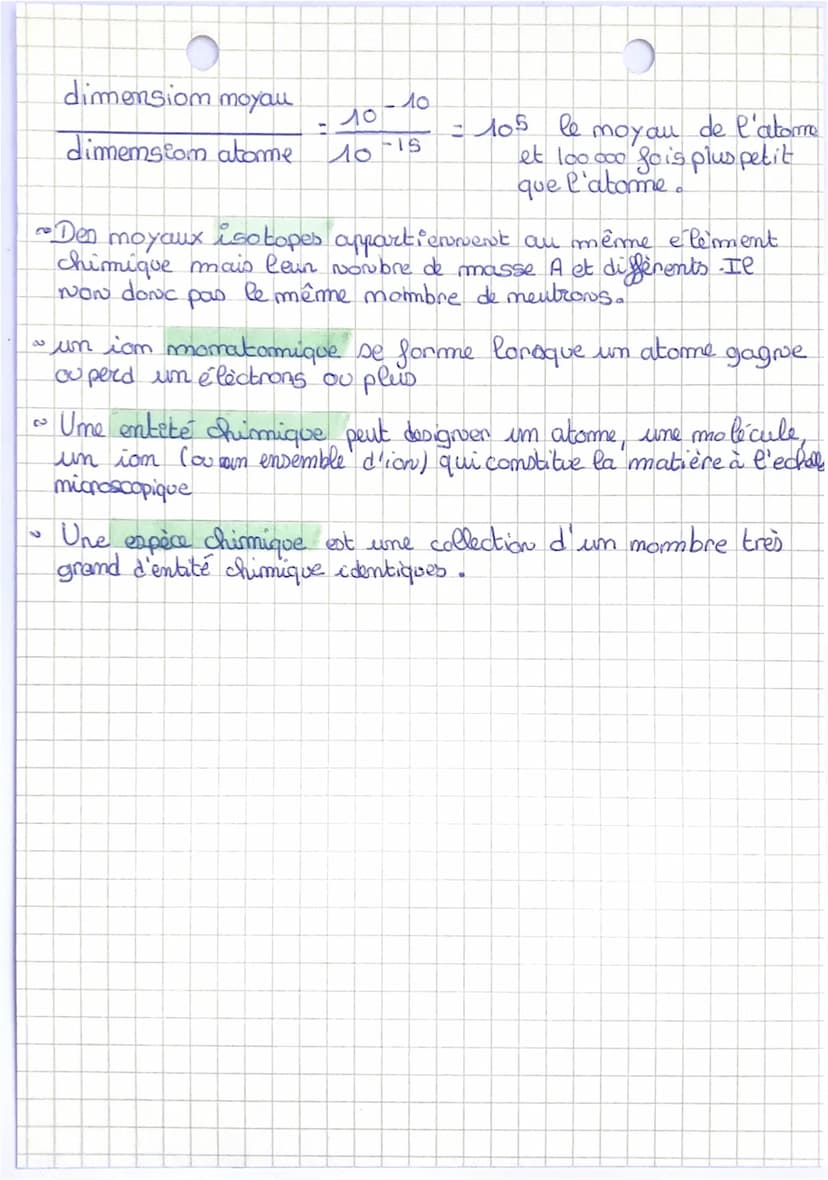 dimmensiom moyau = 10^-10 = 10^5 le moyau de l'atome
dimemsiom atome 10^-15 et 100 000 fois plus petit
que l'atome.
~ Des moyaux isotopes appartiennent au même élèment
chimique mais leur nombre de masse A et diffèrents. Il
non donc pas le même mombre de meutrons.
~ un iom momatomique se forme lorsque um atome gagne
ou perd um élèctrons ou plus
~ Ume entité chimique peut designer um atome, ume molécule,
um iom (ou um ensemble d'ion) qui comstitue la matière à l'echelle
microscopique
~ Une espèce chimique est ume collection d'um mombre très
gramd d'entité chimique identiques.